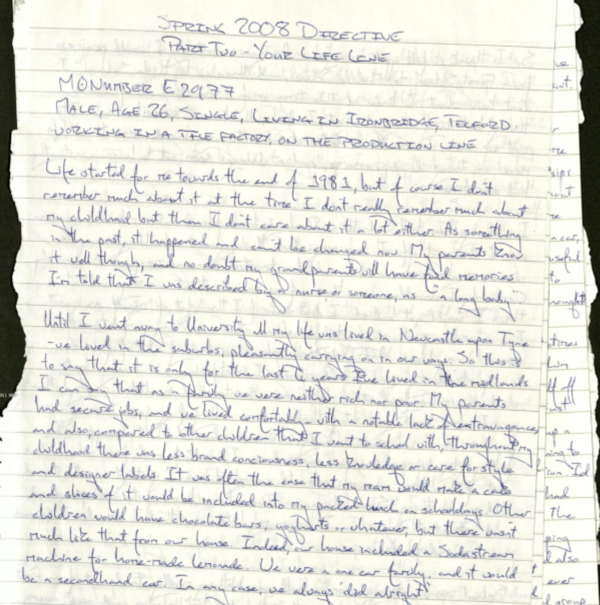 SPRING 2008 DIRECTIVE
PART TWO - YOUR LIFE LINE
MO NUMBER E2977
MALE, AGE 26, SINGLE, LIVING IN IRONBRIDGE, TELFORD.
WORKING IN A TILE FACTORY, ON THE PRODUCTION LINE
Life started for me towards the end of 1981, but of course I don't
remember much about it at the time. I don't really remember much about
my childhood but then I don't care about it a lot either. As something
in the past, it happened and can't be changed now. My parents know
it well though, and no doubt my grandparents will have fond memories.
I'm told that I was described by a nurse or someone, as "a long baby"
Until I went away to University all my life was lived in Newcastle upon Tyne
- we lived in the suburbs, pleasantly carrying on in our ways. So this is
to say that it is only for the last years I've lived in the midlands
I can say that as a family we were neither rich nor poor. My parents
had secure jobs, and we lived comfortably, with a notable lack of extravagances,
and also, compared to other children that I went to school with, throughout my
childhood there was less brand conciousness, less knowledge or care for style
and designer labels. It was often the case that my mum would make a cake
and slices of it would be included into my packed lunch on schooldays. Other
children would have chocolate bars, yoghurts or whatever, but there wasn't
much like that from our house. Indeed, our house included a Sodastream
machine for home-made lemonade. We were a one car family, and it would
be a secondhand car. In any case, we always did alright